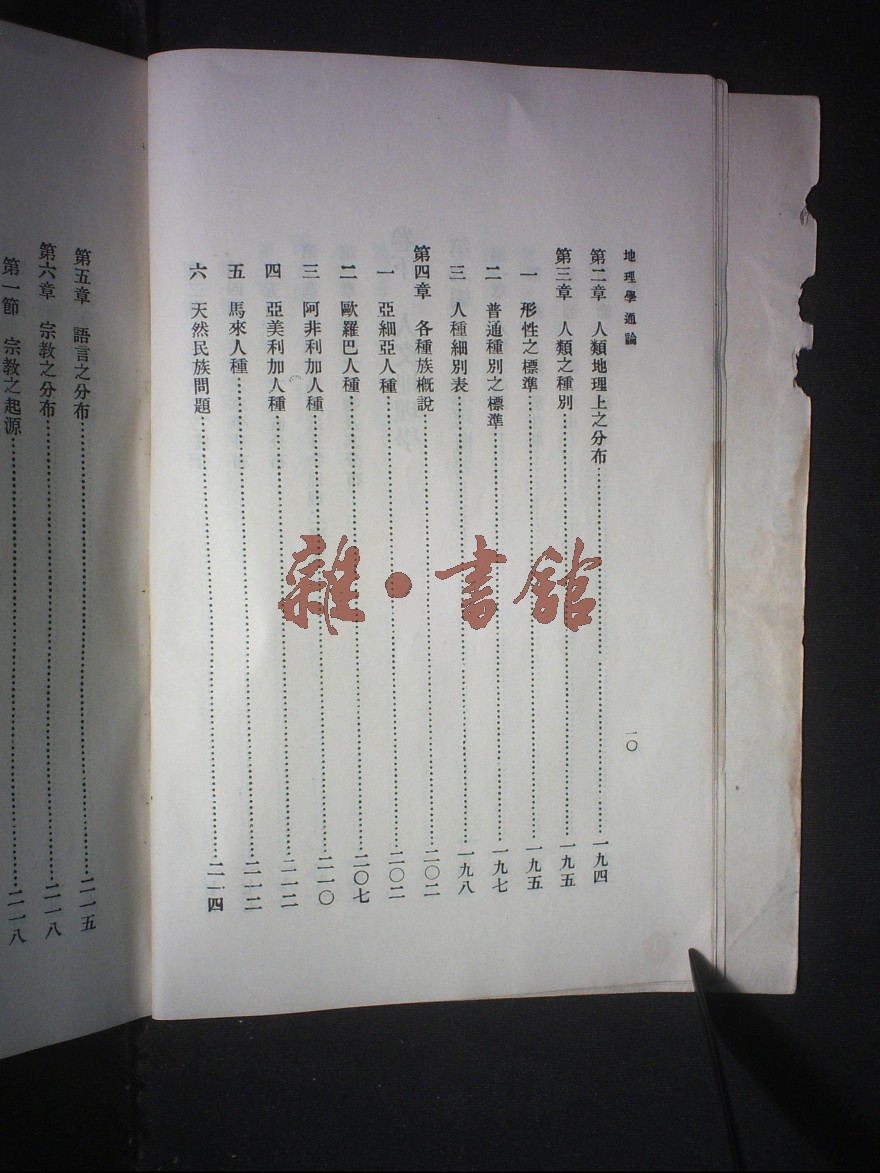 地理學通論
一〇
第二章 人類地理上之分布……一九四
第三章 人類之種別……一九五
一 形性之標準……一九五
二 普通種別之標準……一九七
三 人種細別表……一九八
第四章 各種族概說……二〇二
一 亞細亞人種……二〇二
二 歐羅巴人種……二〇七
三 阿非利加人種……二一〇
四 亞美利加人種……二一二
五 馬來人種……二一二
六 天然民族問題……二一四
第五章 語言之分布……二一五
第六章 宗教之分布……二一八
第一節 宗教之起源……二一八
雜·書館